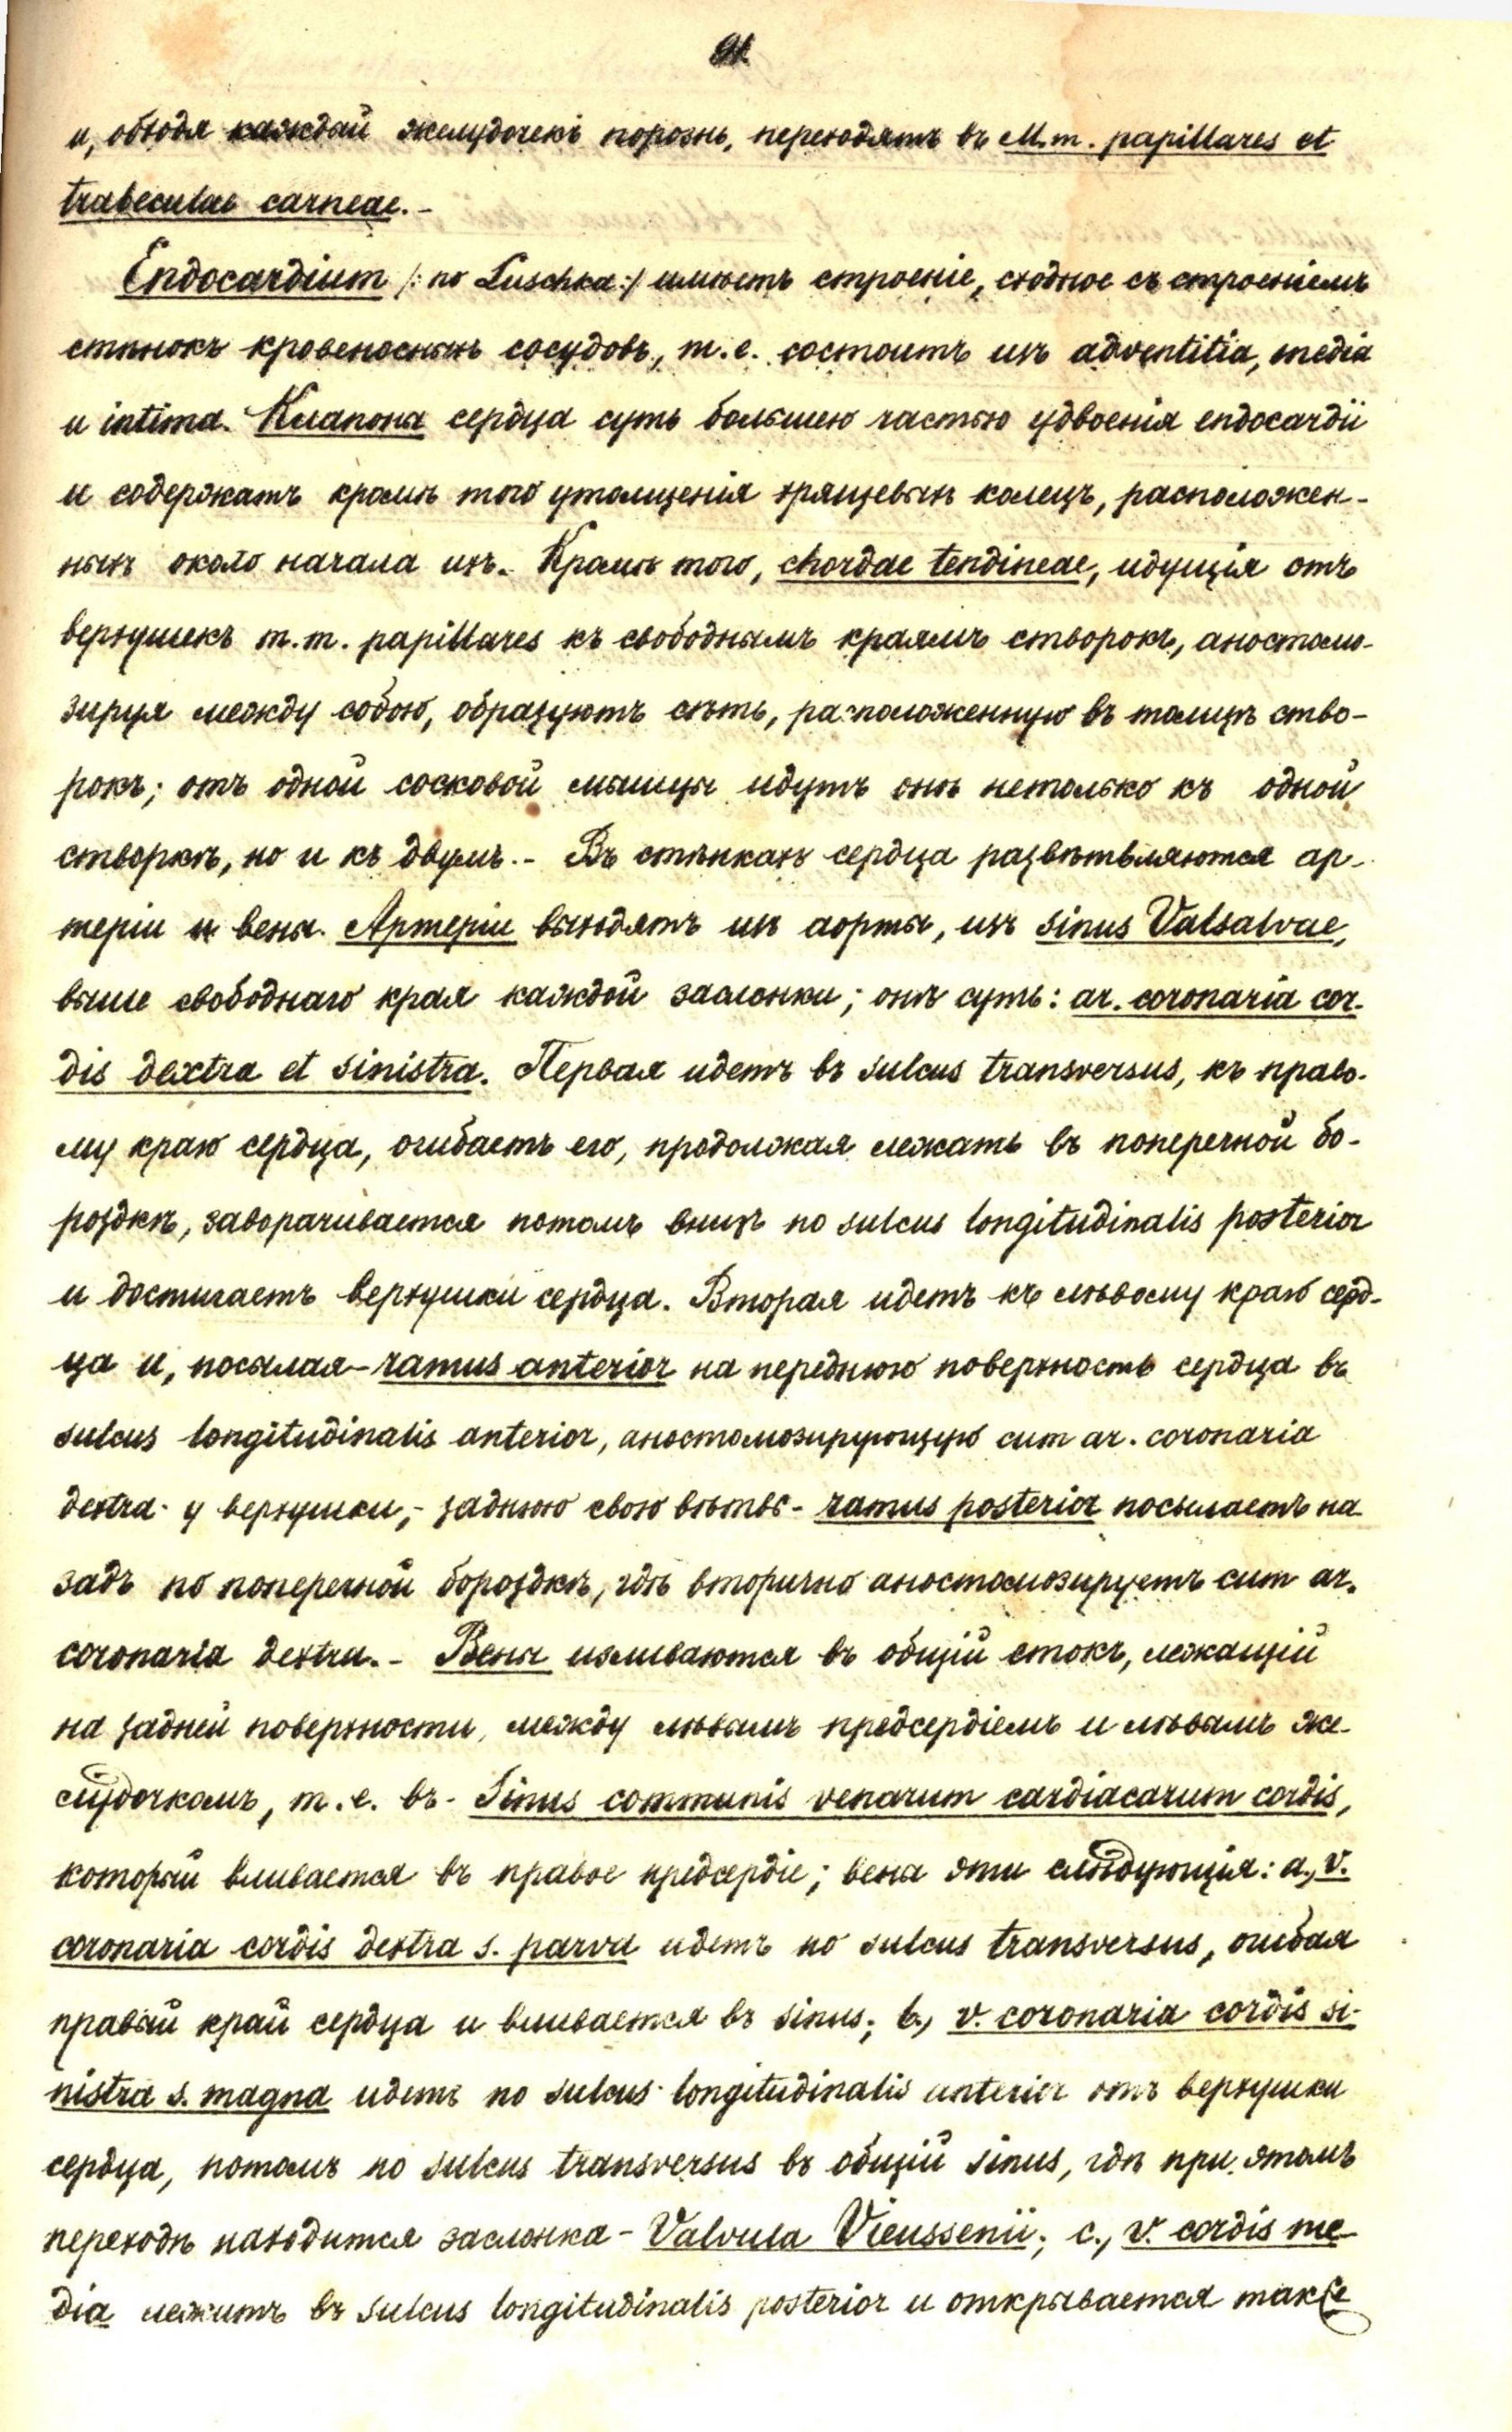 91.
и, обходя каждый желудочекъ порознь, переходятъ въ M.m. papillares et
trabeculae carneae.-
Endocardium /: по Luschka :/ имѣетъ строеніе, сходное съ строеніемъ
стѣнокъ кровеносныхъ сосудовъ, т.е. состоитъ изъ adventitia, media
и intima. Клапоны сердца суть большею частью удвоенія endocardii
и содержатъ кромѣ того утолщенія хрящевыхъ колецъ, расположен-
ныхъ около начала ихъ. Кромѣ того, chordae tendineae, идущія отъ
верхушекъ m.m. papillares къ свободнымъ краямъ створокъ, аностомо-
зируя между собою, образуютъ сѣть, расположенную въ толщѣ ство-
рокъ; отъ одной сосковой мышцы идутъ онѣ нетолько къ одной
створкѣ, но и къ двумъ.- Въ стѣнкахъ сердца развѣтвляются ар-
теріи и вены. Артеріи выходятъ изъ аорты, изъ sinus Valsalvae,
выше свободнаго края каждой заслонки; онѣ суть: ar. coronaria cor-
dis dextra et sinistra. Первая идетъ въ sulcus transversus, къ право-
му краю сердца, огибаетъ его, продолжая лежать въ поперечной бо-
роздкѣ, заворачивается потомъ внизъ по sulcus longitudinalis posterior
и достигаетъ верхушки сердца. Вторая идетъ къ лѣвому краю серд-
ца и, посылая - ramus anterior на переднюю поверхность сердца въ
sulcus longitudinalis anterior, аностомозирующую cum ar. coronaria
dextra у верхушки,- заднюю свою вѣтвь - ramus posterior посылаетъ на-
задъ по поперечной бороздкѣ, гдѣ вторично аностомозируетъ cum ar.
coronaria dextra.- Вены изливаются въ общій стокъ, лежащій
на задней поверхности, между лѣвымъ предсердіемъ и лѣвымъ же-
лудочкомъ, т.е. въ - Sinus communis venarum cardiacarum cordis,
который вливается въ правое предсердіе; вены эти слѣдующія: a., v.
coronaria cordis dextra s. parva идетъ по sulcus transversus, огибая
правый край сердца и вливается въ sinus; b., v. coronaria cordis si-
nistra s. magna идетъ по sulcus longitudinalis anterior отъ верхушки
сердца, потомъ по sulcus transversus въ общій sinus, гдѣ при этомъ
переходѣ находится заслонка - Valvula Vieussenii; c., v. cordis me-
dia лежитъ въ sulcus longitudinalis posterior и открывается также